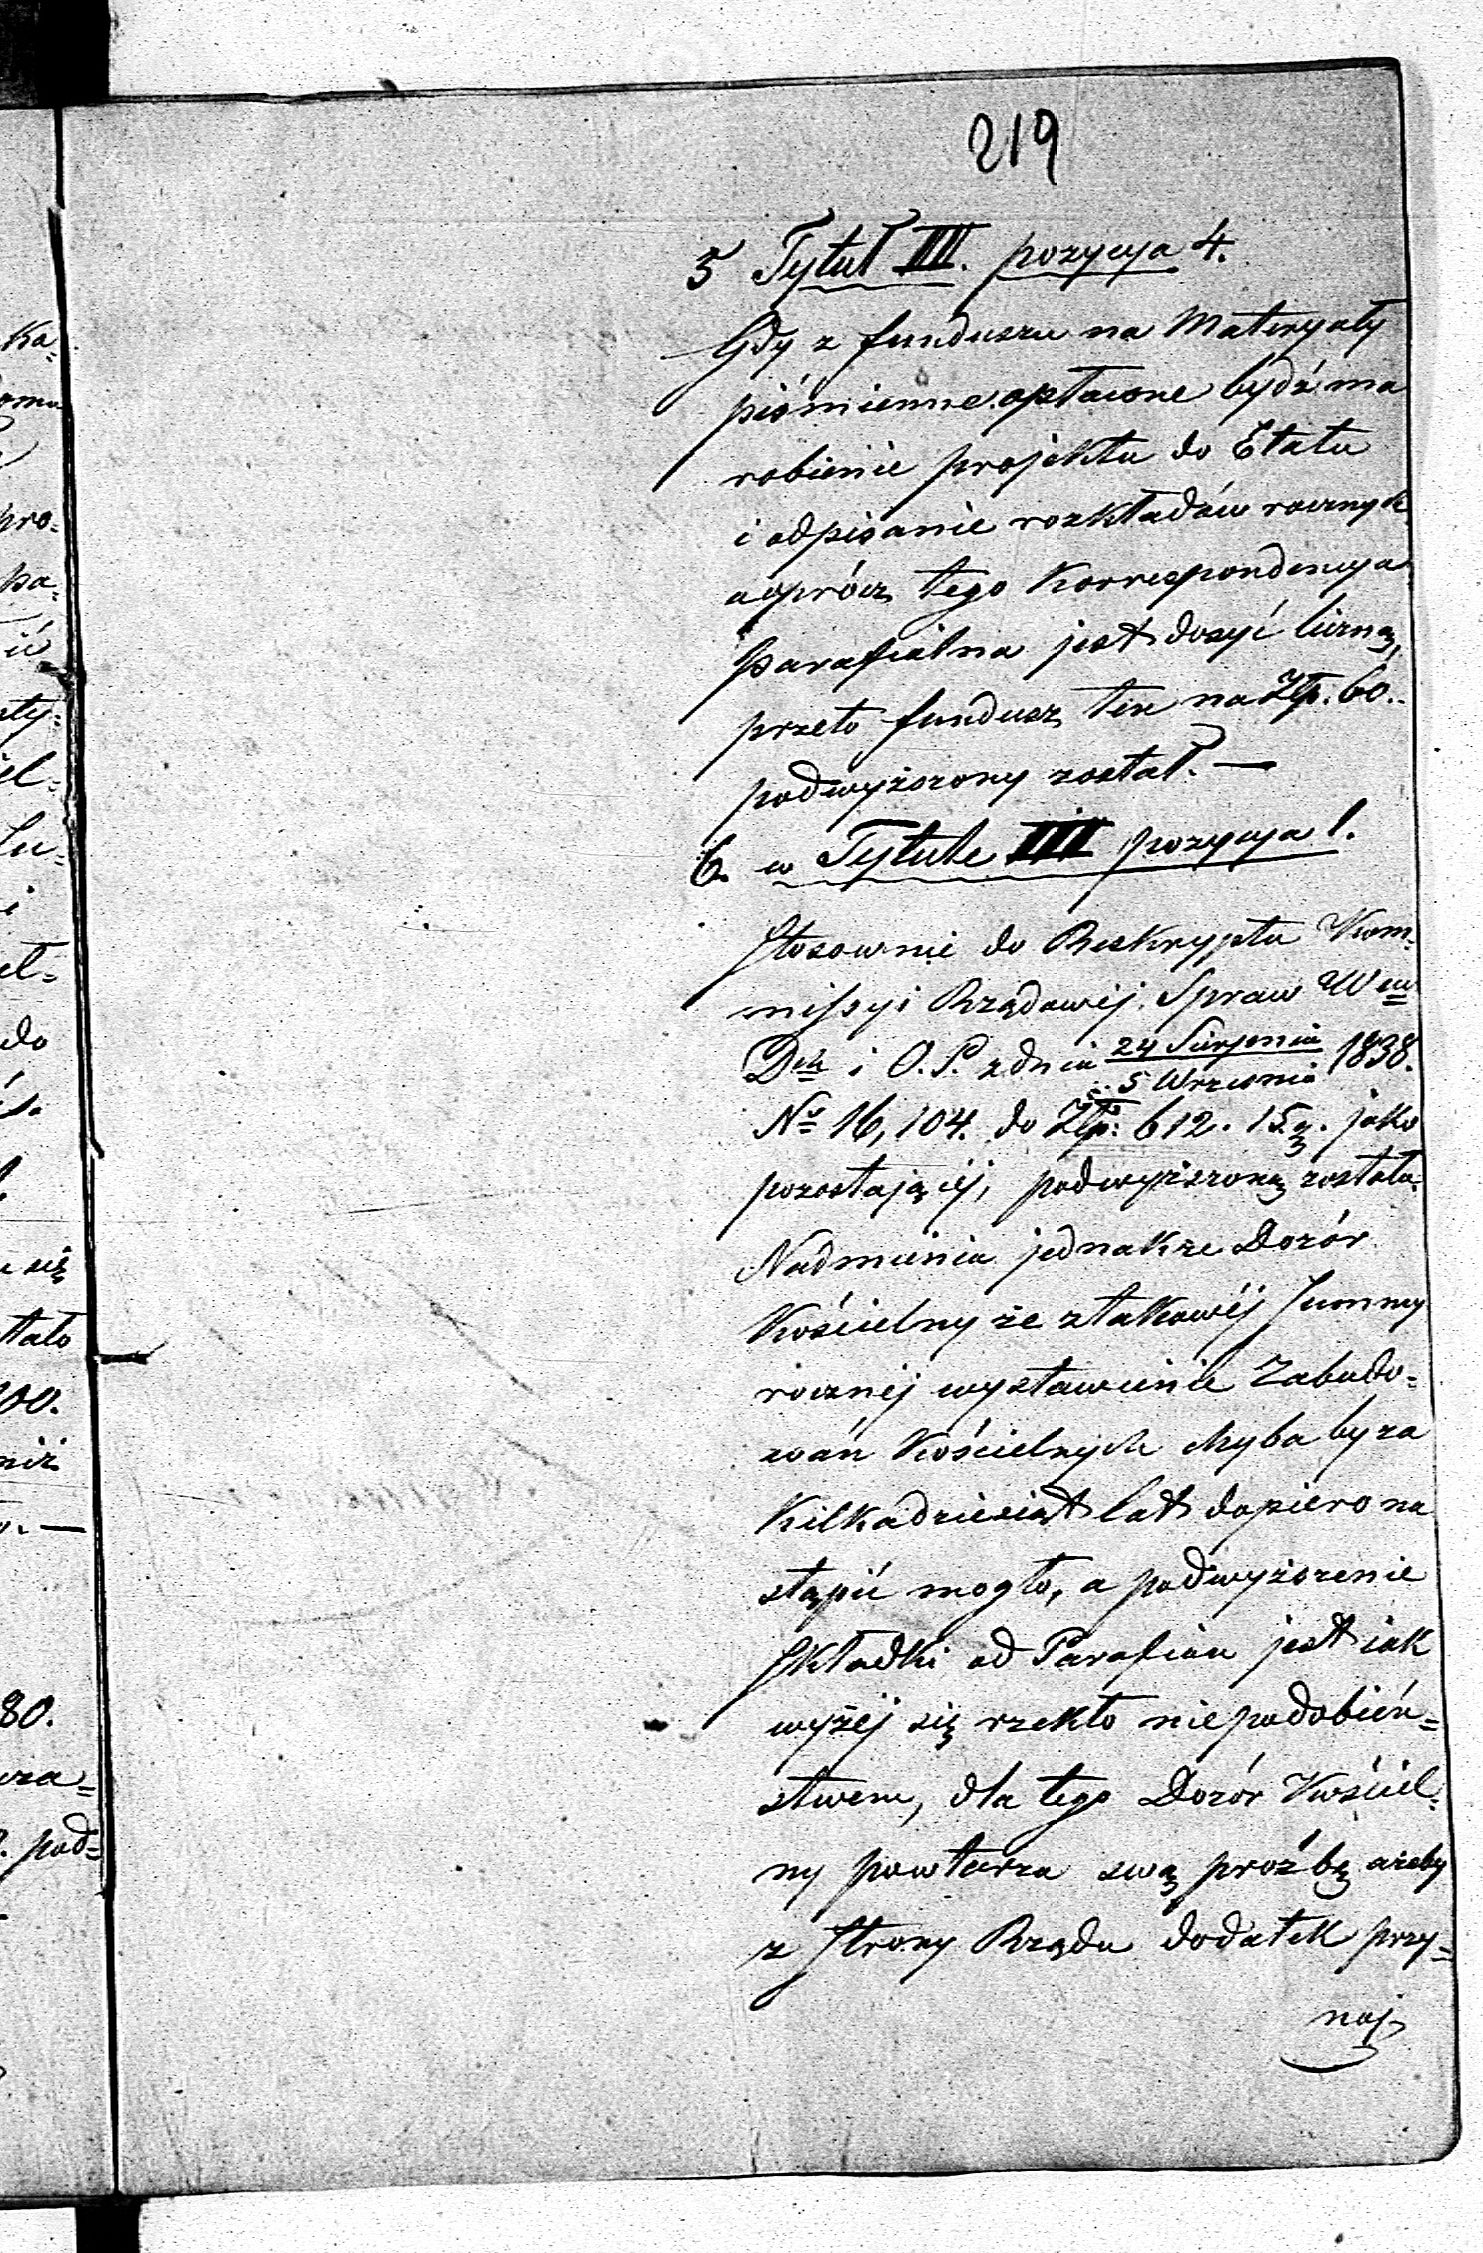 219
5 Tytuł III. pozycya 4.
Gdy z funduszu na Materyały
piśmienne opłacone bydź ma
robienie projektu do Etatu
i odpisanie rozkładów rocznych
a oprócz tego Korrespondencya
Parafialna jest dosyć liczną,
przeto fundusz ten na Złp. 60.
podwyższony został. —
6. w Tytule III pozycya 1.
Stosownie do Reskryptu Kom-
missyi Rządowéj Spraw Wew
Dch i O. P. z dnia 24 Sierpnia 1838.
5 Września
No 16,104. do Złp: 612. 15 g. jako
pozostającéj, podwyższoną została.
Nadmienia jednakże Dozór
Kościelny że z takowéj Summy
rocznéj wystawienie Zabudo=
wań Kościelnych chyba by za
Kilkadziesiąt lat dopiero na
stąpić mogło, a podwyższenie
Składki od Parafian jest iak
wyżéj się rzekło niepodobień=
stwem, dla tego Dozór Kościel=
ny powtarza swą proźbę ażeby
z Strony Rządu dodatek przy=
naj
Ka=
pro=
pa=
ić
aty=
iel=
i
do
się
tało
100.
niż
80.
pod=